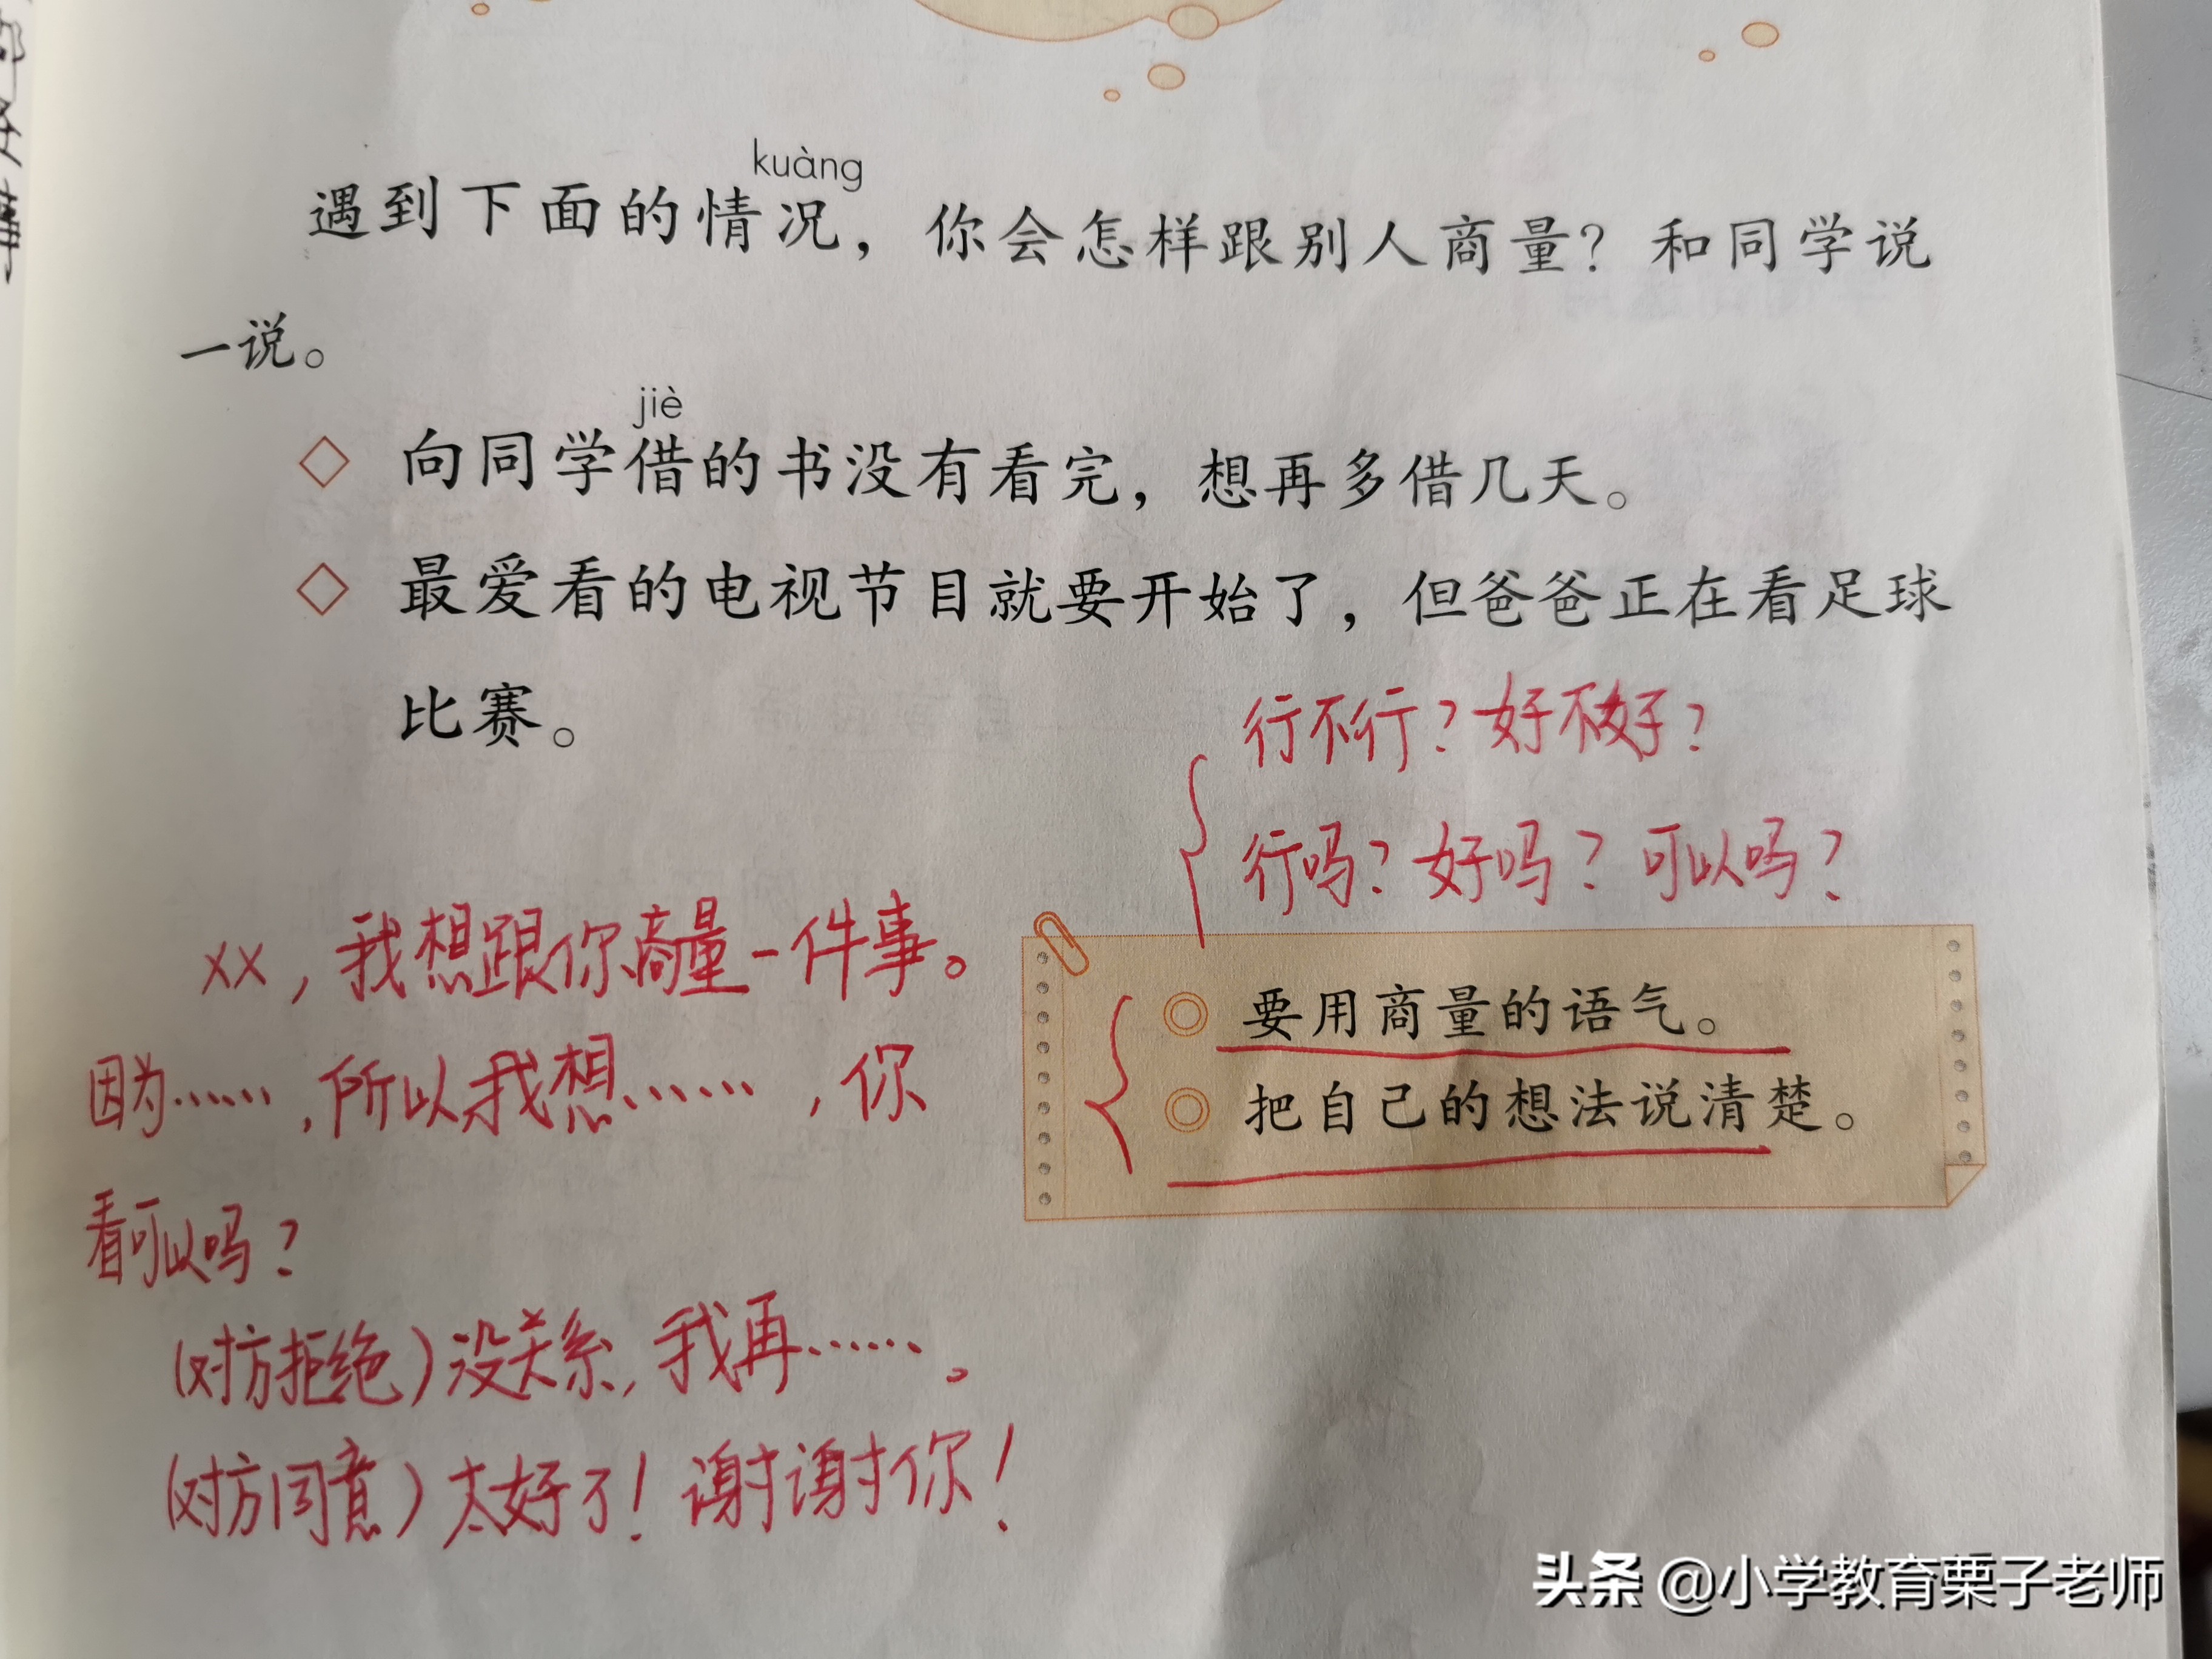 kuàng
遇到下面的情况，你会怎样跟别人商量？和同学说
一说。
jiè
向同学借的书没有看完，想再多借几天。
最爱看的电视节目就要开始了，但爸爸正在看足球
比赛。
行不行？好不好？
行吗？好吗？可以吗？
xx，我想跟你商量一件事。
因为……，所以我想……，你
看可以吗？
(对方拒绝)没关系，我再……。
(对方同意)太好了！谢谢你！
要用商量的语气。
把自己的想法说清楚。
头条 @小学教育栗子老师